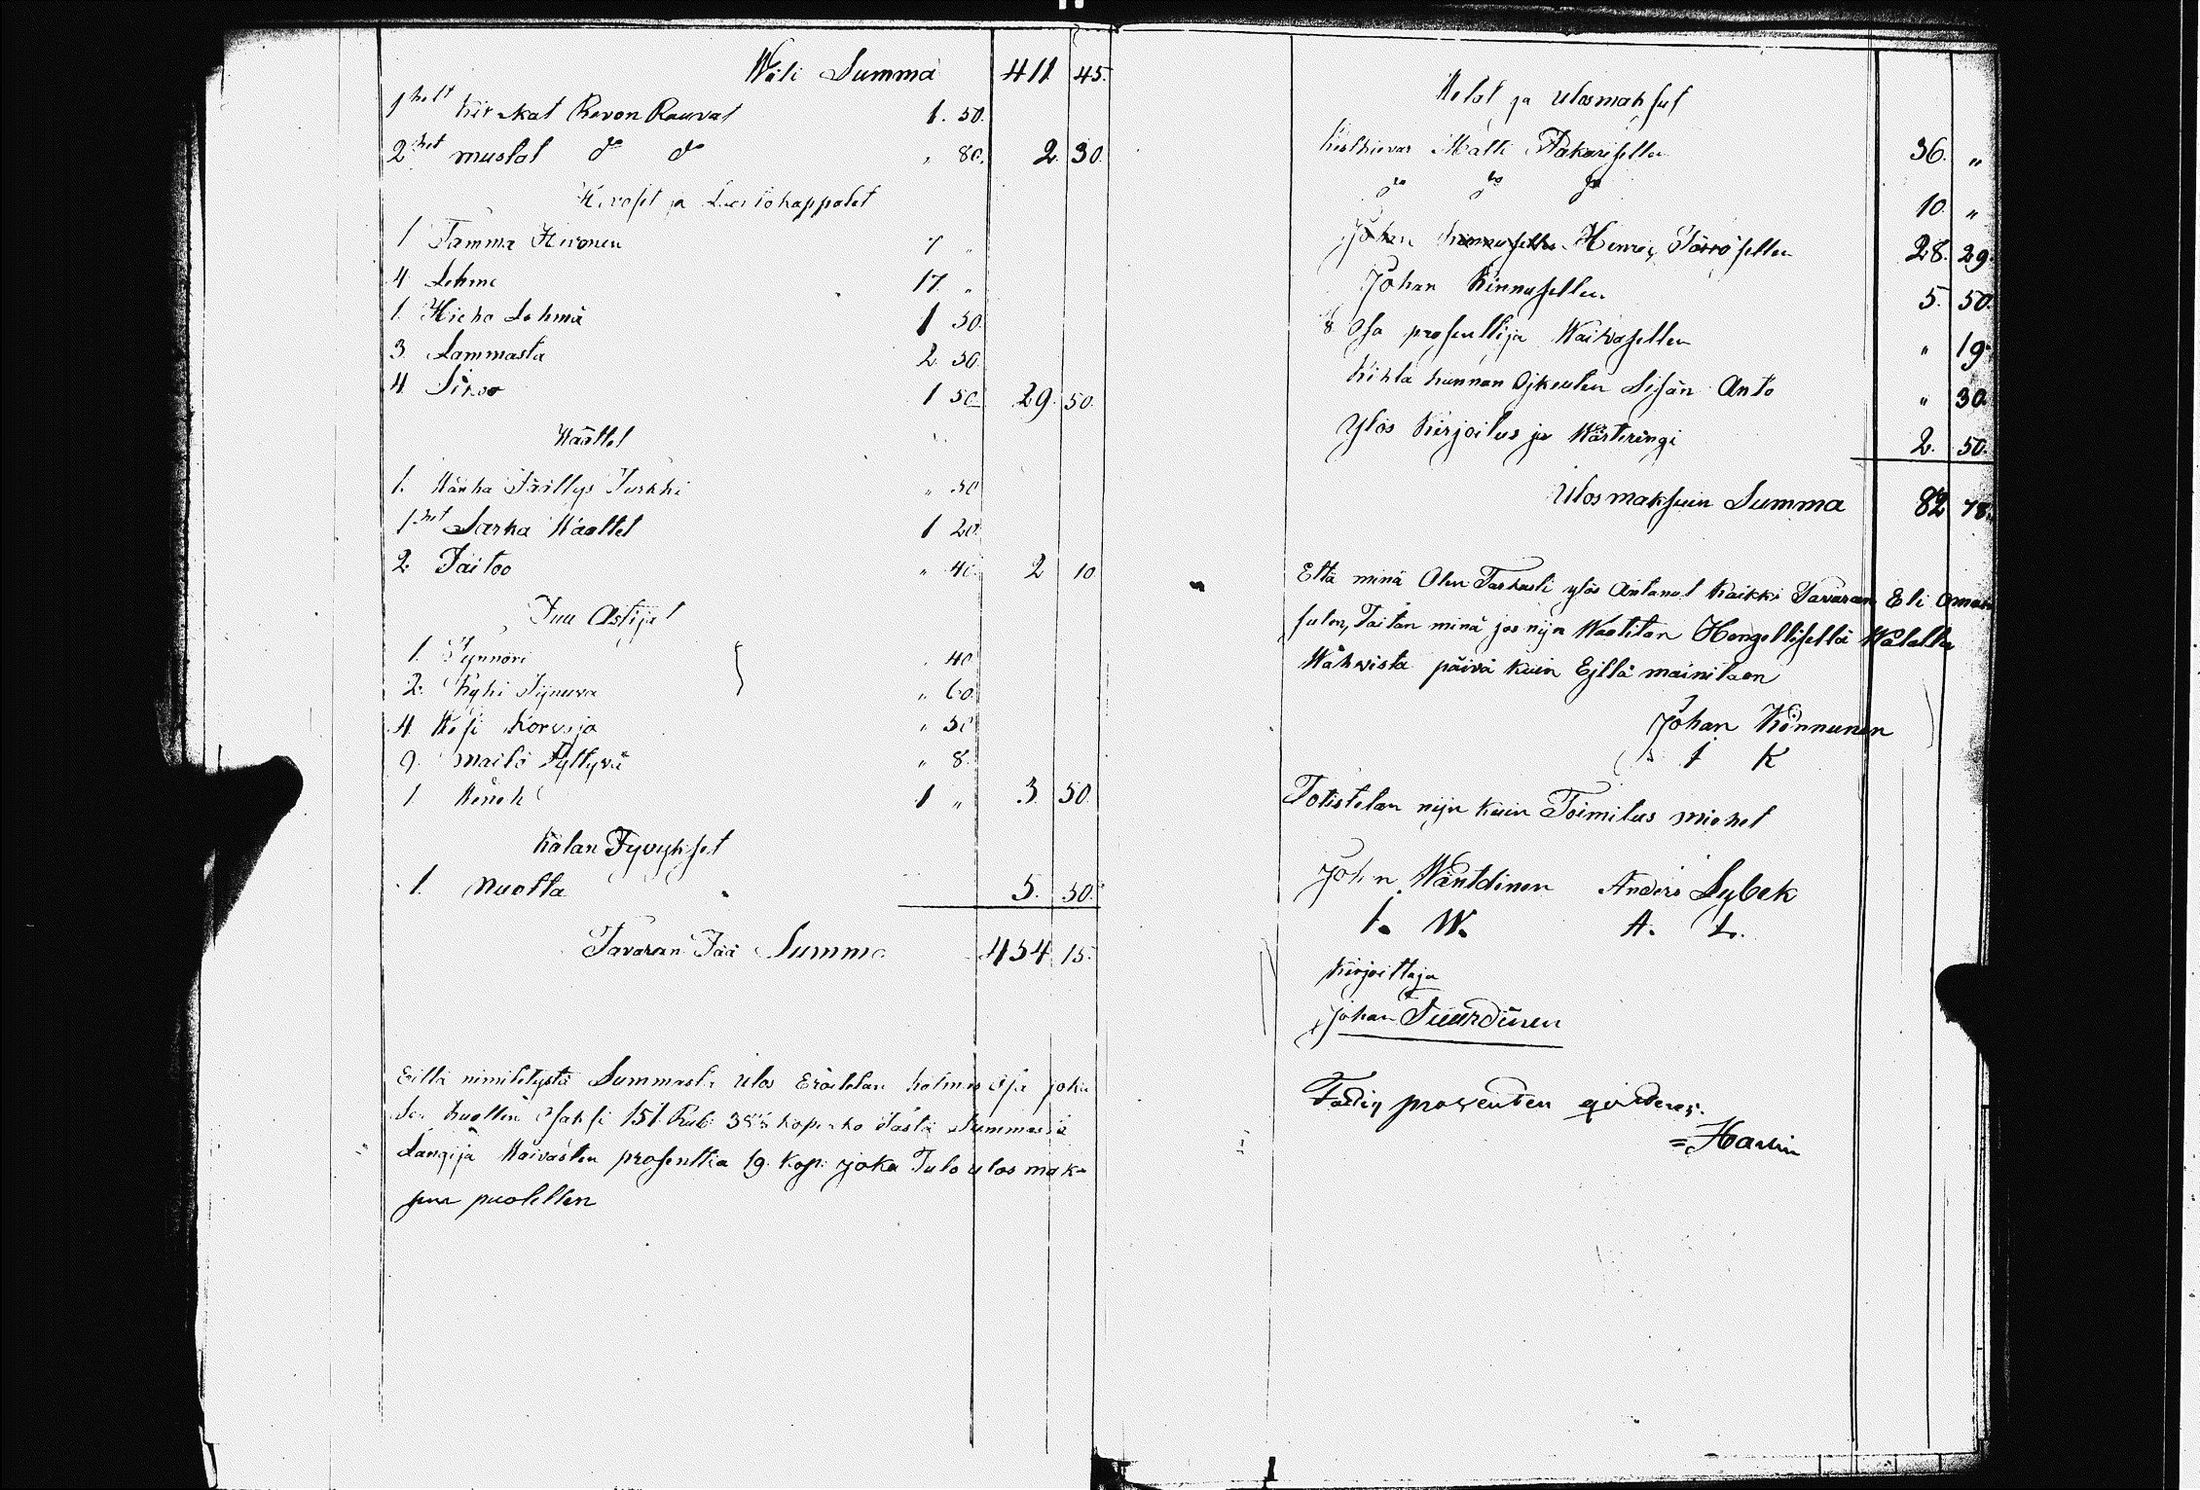 Wäli Summa 411 45.
1 helt kirjkat Revon Rauvat 1. 50.
2 het mustat do do " 80. 2. 30.
Hevoset ja Luontokappalet
1 Tamma Hevonen 7 "
4 Lehmä 17 "
1. Hieho Lehmä 1 50.
3 Lammasta 2 50
4 Sikoo 1 50 29. 50.
Waattet
1. Wanha Täällys Turkki " 50
1. het Sarka Waattet 1 20.
2 Täitoo " 40. 2 10
Puu Astijat
1. Tynnöri " 40
2. Tijnuva " 60.
4 Wesi Korvoja " 50
9. Maito Pyttyvä " 8.
1 Weneh 1 " 3. 50.
Kalan Pyvyxset
1. Nuotta 5. 50.
Tavaran Pää Summa 454 15.
Eillä nimitetystä Summasta Ulos Eroitetan kolmas Osa joka
Kuollen Osaksi 151 Rub: 38 kopekko Tästä Summasta
Langija Waivasten prosenttia 19. Kop: joka Tulo ulos mak-
suin puolellen
Welat ja Ulosmaksut
Kestkievar Matti Pakariselle 36. "
do do do 10. "
Johan Henric Törröisellen 28. 29.
Johan Kinnusellen 5. 50.
8 Osa prosenttija Waivasellen " 19.
Kihla kunnan Ojkeuten Sisän Anto " 30.
Ylös Kirjoitus ja Wärteringi 2. 50.
Ulosmaksuin Summa 82 78.
Että minä Olen Tarkasti ylös Antanut Kaikki Tavaran Eli Omai-
suten, Taitan minä jos nijn Waatitan Hengellisellä Walalla
Wahvista päivä kuin Ejllä mainitaan
Johan Kinnunen
I K
Totistetan nijn kuin Toimitus miehet
Johan Wäntdinen Anders Lybek
I. W. A. L.
Kirjoittaja
Johan Tuurdinen
Fattig procenten qvitteras.
= Hartin